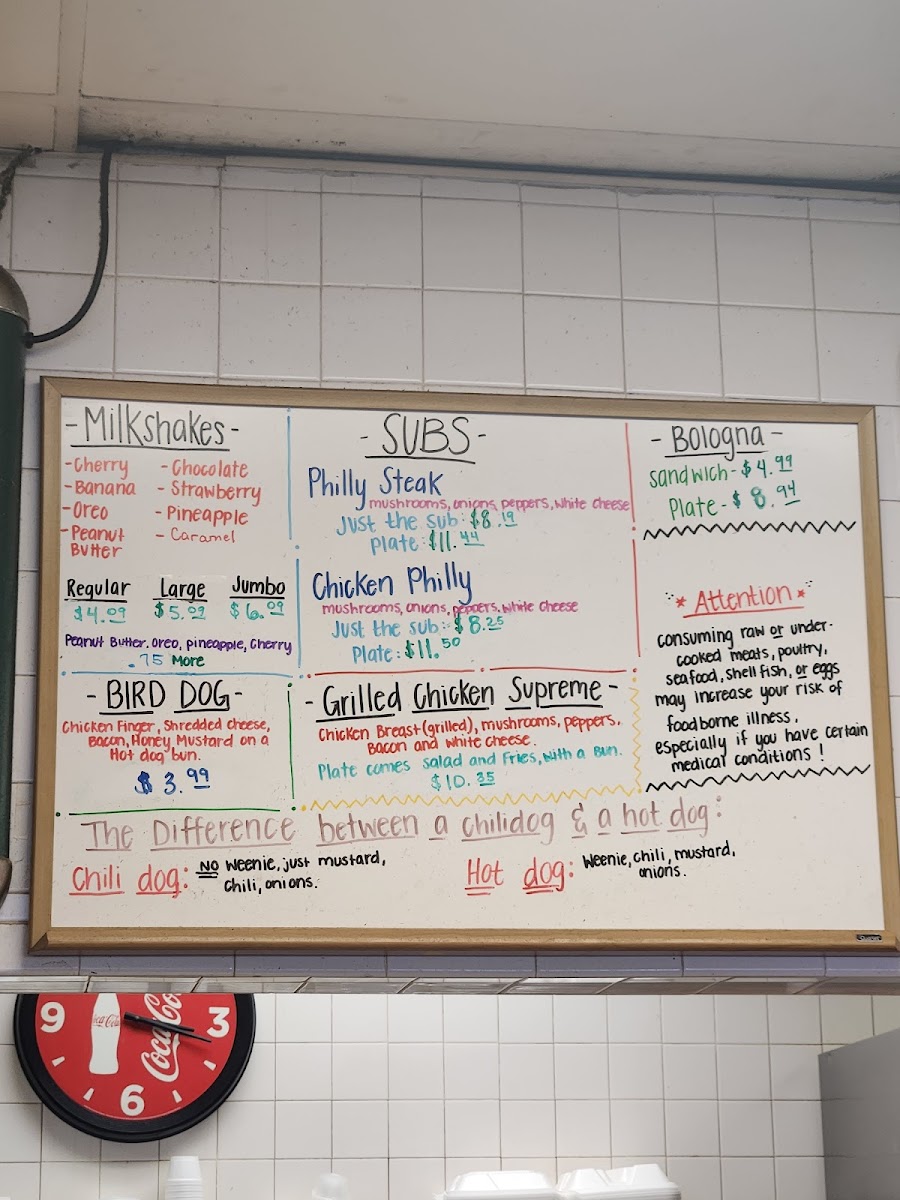 -Milkshakes-
-Cherry
-Banana
-Oreo
-Peanut
Butter
-Chocolate
-Strawberry
-Pineapple
-Caramel
Regular Large Jumbo
$4.09 $5.09 $6.09
Peanut Butter, Oreo, pineapple, Cherry
.75 More
-SUBS-
Philly Steak
mushrooms, onions, peppers, white cheese
Just the sub: $8.19
Plate: $11.44
Chicken Philly
mushrooms, onions, peppers, white cheese
Just the sub: $8.25
Plate: $11.50
-Bologna-
Sandwich-$4.99
Plate-$8.94
Attention
consuming raw or under-
cooked meats, poultry,
seafood, shell fish, or eggs
may increase your risk of
foodborne illness,
especially if you have certain
medical conditions!
-BIRD DOG-
Chicken Finger, Shredded cheese,
Bacon, Honey Mustard on a
Hot dog bun.
$3.99
-Grilled Chicken Supreme-
Chicken Breast (grilled), mushrooms, peppers,
Bacon and white cheese.
Plate comes salad and Fries, with a Bun.
$10.35
The Difference between a chilidog & a hot dog:
Chili dog: NO weenie, just mustard,
chili, onions.
Hot dog: Weenie, chili, mustard,
onions.
9
3
6
Coca-Cola
Coca-Cola